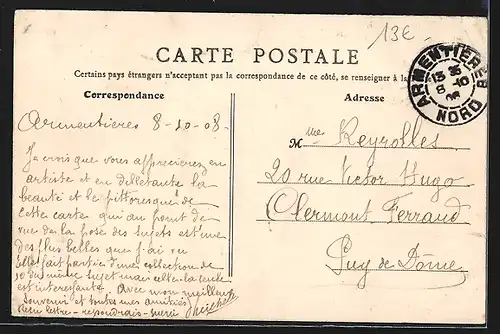 13€
CARTE POSTALE
Certains pays étrangers n'acceptent pas la correspondance de ce côté, se renseigner à la
Correspondance
Adresse
ARMENTIÈRES
NORD
Armentières 8-10-08.
Je crois que vous apprécierez en
artiste et en dilettante la
beauté et le pittoresque de
cette carte qui au point de
vue de la pose des sujets est une
des plus belles que j'ai vu
Elle fait partie d'une collection de
10 du même sujet mais celle-là seule
est intéressante. Avec mon meilleur
souvenir et toutes mes amitiés
Reçu lettre - répondrais -
Mme Reyrolles
20 rue Victor Hugo
Clermont Ferrand
Puy de Dôme